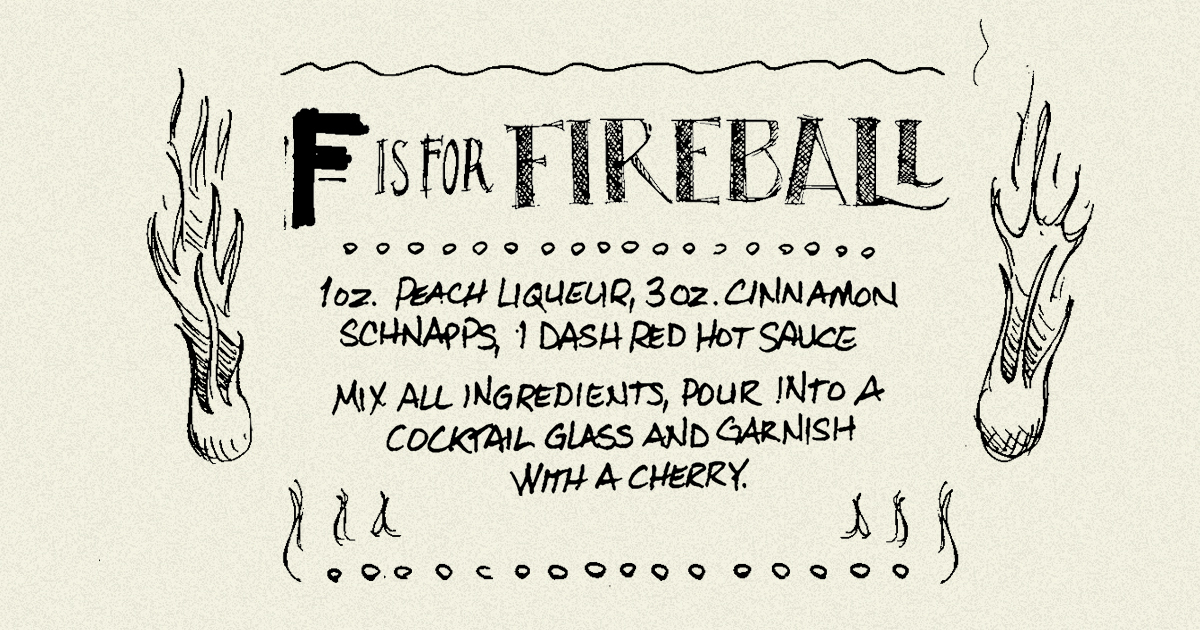 F IS FOR FIREBALL
1oz. PEACH LIQUEUR, 3 oz. CINNAMON
SCHNAPPS, 1 DASH RED HOT SAUCE
MIX ALL INGREDIENTS, POUR INTO A
COCKTAIL GLASS AND GARNISH
WITH A CHERRY.